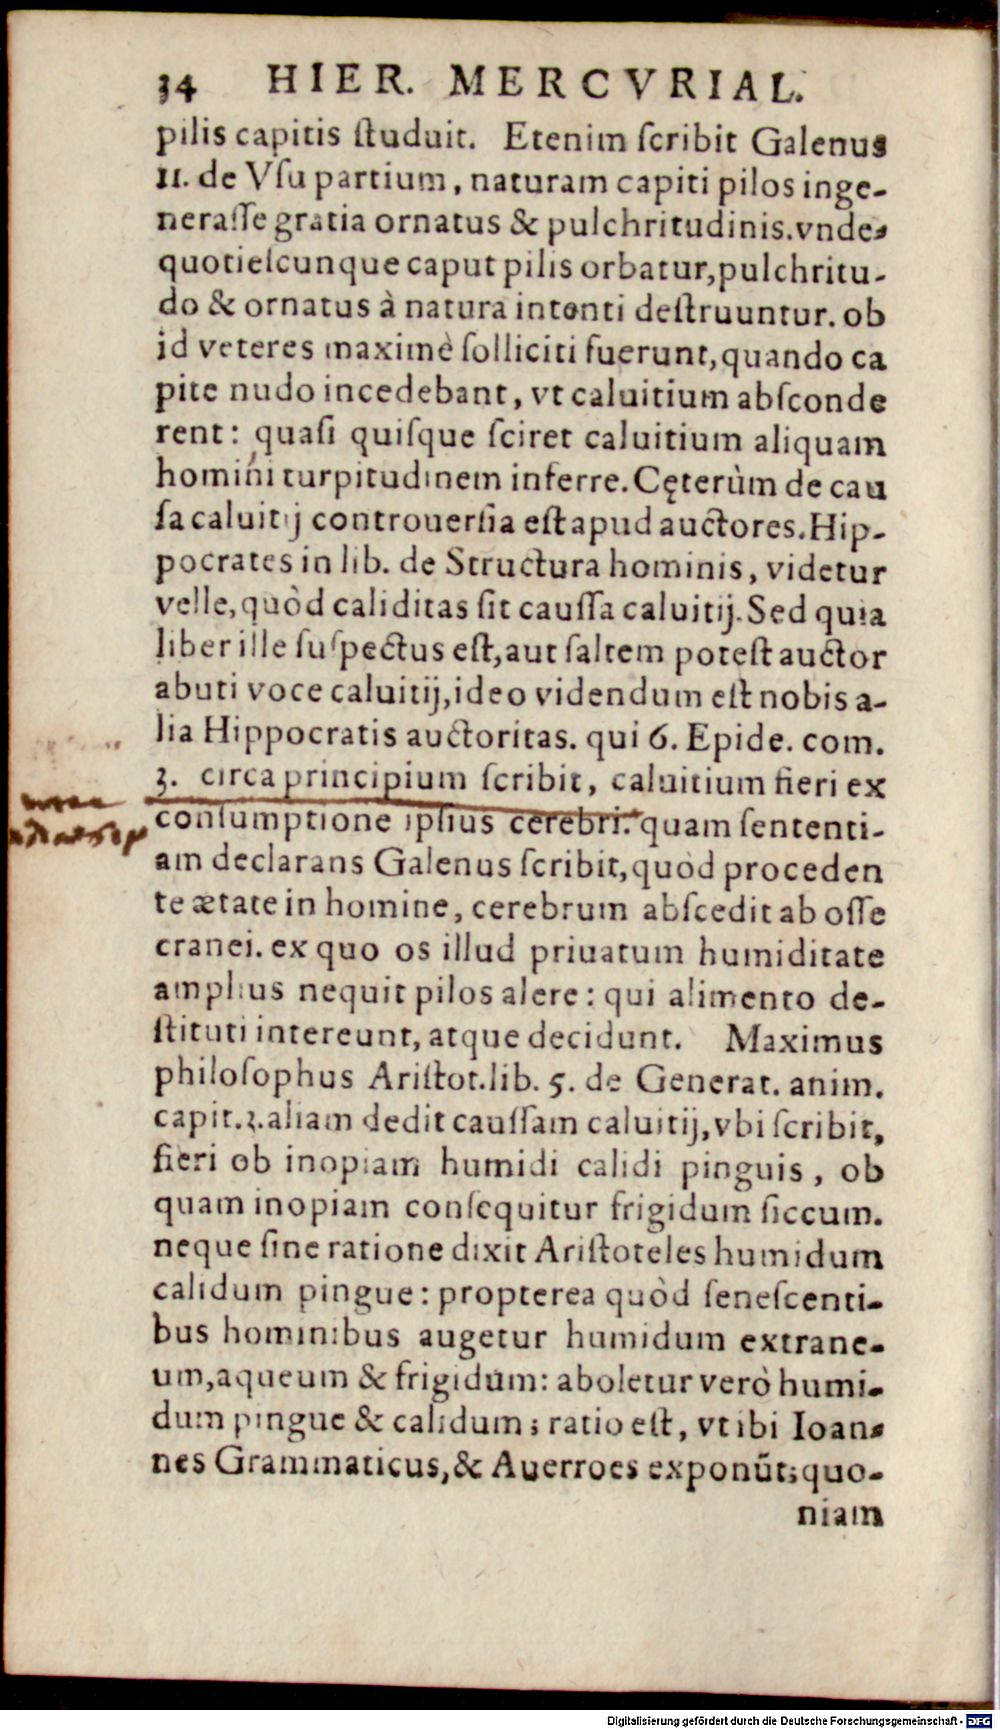 34 HIER. MERCVRIAL.
pilis capitis ſtuduit. Etenim ſcribit Galenus
11. de Vſu partium, naturam capiti pilos inge-
neraſſe gratia ornatus & pulchritudinis. vnde-
quotieſcunque caput pilis orbatur, pulchritu-
do & ornatus à natura intenti deſtruuntur. ob
id veteres maximè ſolliciti fuerunt, quando ca
pite nudo incedebant, vt caluitium abſconde
rent: quaſi quiſque ſciret caluitium aliquam
homini turpitudinem inferre. Cęterùm de cau
ſa caluitij controuerſia eſt apud auctores. Hip-
pocrates in lib. de Structura hominis, videtur
velle, quòd caliditas ſit cauſſa caluitij. Sed quia
liber ille ſuſpectus eſt, aut ſaltem poteſt auctor
abuti voce caluitij, ideo videndum eſt nobis a-
lia Hippocratis auctoritas. qui 6. Epide. com.
3. circa principium ſcribit, caluitium fieri ex
conſumptione ipſius cerebri. quam ſententi-
am declarans Galenus ſcribit, quòd proceden
te ætate in homine, cerebrum abſcedit ab oſſe
cranei. ex quo os illud priuatum humiditate
amplius nequit pilos alere: qui alimento de-
ſtituti intereunt, atque decidunt. Maximus
philoſophus Ariſtot. lib. 5. de Generat. anim.
capit. 3. aliam dedit cauſſam caluitij, vbi ſcribit,
fieri ob inopiam humidi calidi pinguis, ob
quam inopiam conſequitur frigidum ſiccum.
neque ſine ratione dixit Ariſtoteles humidum
calidum pingue: propterea quòd ſeneſcenti-
bus hominibus augetur humidum extrane-
um, aqueum & frigidum: aboletur verò humi-
dum pingue & calidum; ratio eſt, vt ibi Ioan-
nes Grammaticus, & Auerroes exponũt; quo-
niam
Digitalisierung gefördert durch die Deutsche Forschungsgemeinschaft - DFG